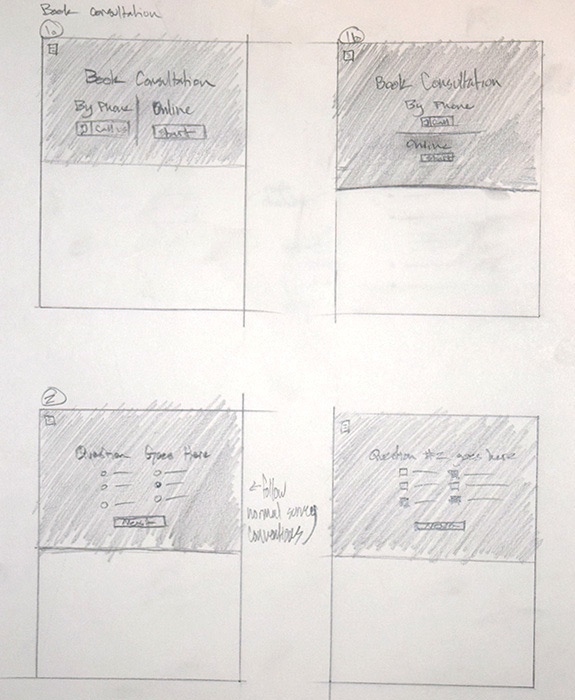 Book Consultation
1a
Book Consultation
By Phone
Call us
Online
Start
1b
Book Consultation
By Phone
Call
Online
Start
2
Question Goes Here
Next
← Follow
normal survey
conventions
Question #2 goes here
Next